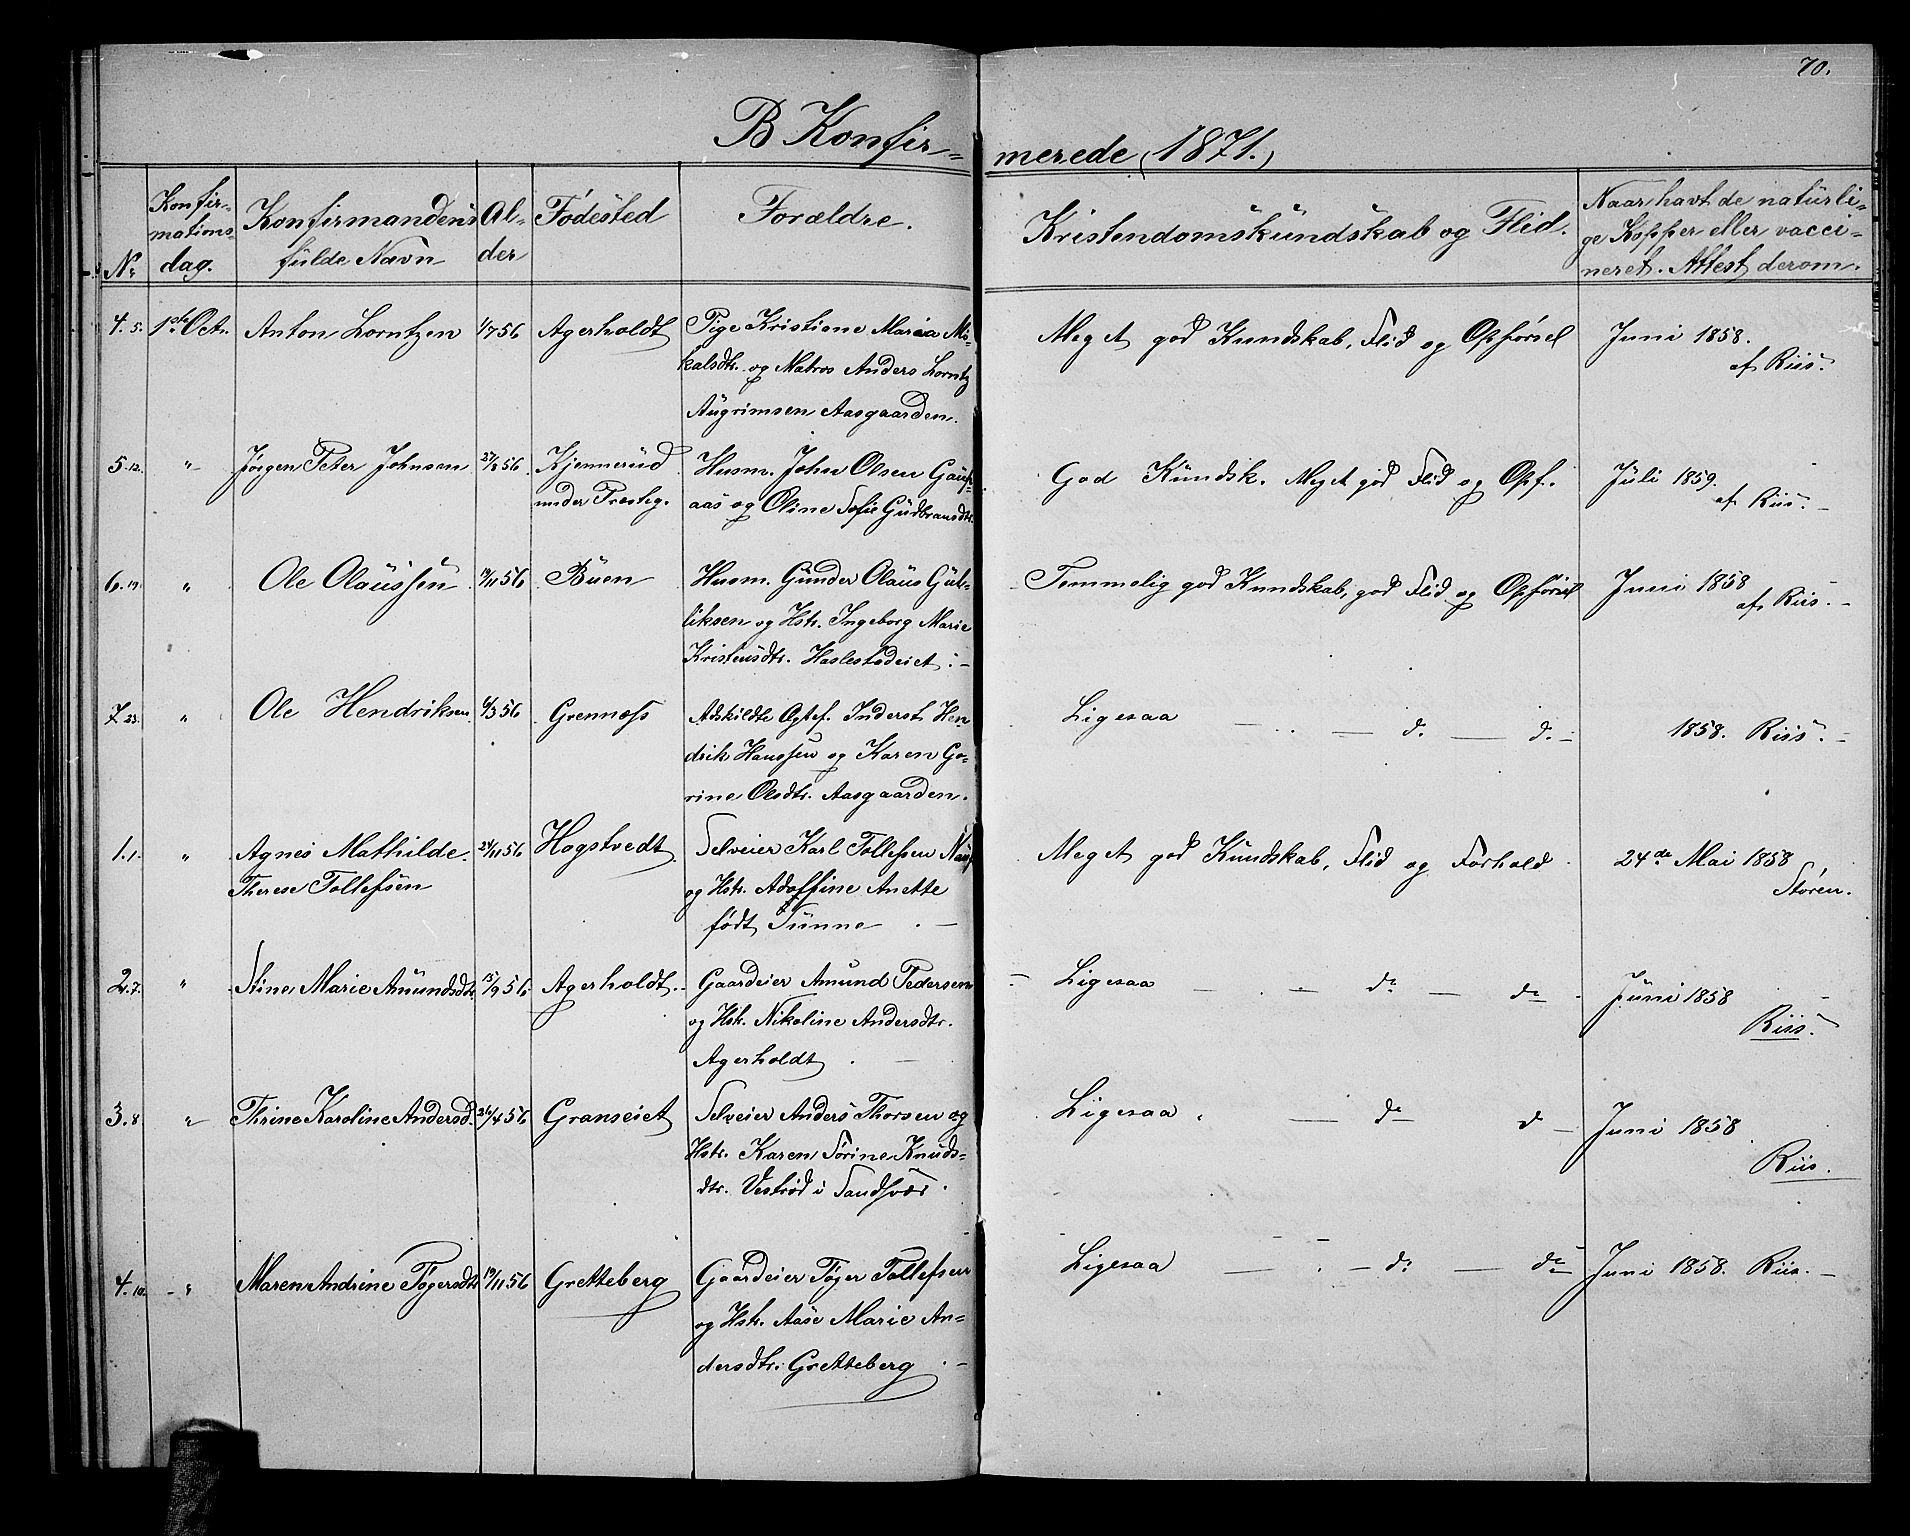 70.
B Konfir= merede (1871.)
No
Konfir=
mations=
dag.
Konfirmandens
fulde Navn
Al=
der
Fødested
Forældre.
Kristendomskundskab og Flid.
Naar havt de naturli=
ge Kopper eller vacci=
neret. Attest derom.
4. 5. 1ste Octr. Anton Lorntzen 1/7 56 Agerholdt
Pige Kristiane Maria Mi=
kalsdtr. og Matros Anders Lorntz
Augrimsen Aasgaarden.
Meget god Kundskab, Flid og Opførsel
Juni 1858.
af Riis.
5. 12. " Jørgen Peter Johnsen 27/8 56 Kjennerud
under Præsteg.
Husm. John Olsen Gaup=
aas og Oline Sofie Gudbransdtr.
God Kundsk. Meget god Flid og Opf.
Juli 1859.
af Riis.
6. 19. " Ole Olaussen 19/11 56 Buen
Husm. Gunder Olaus Gul=
liksen og Hstr. Ingeborg Marie
Kristensdtr. Haslestadeiet.
Temmelig god Kundskab, god Flid og Opførsel
Juni 1858
af Riis.
7. 23. " Ole Hendriksen 6/3 56 Grennæss
Adskildte Ægtef. Inderst Hen
drik Hanssen og Karen Go=
rine Olsdtr. Aasgaarden.
Ligesaa — d. — d. —
1858. Riis.
1. 1. " Agnes Mathilde
Therese Tollefsen
29/11 56 Hogstvedt
Selveier Karl Tollefsen
og Hstr. Adolffine Anette
født Tunne
Meget god Kundskab, Flid og Forhold
24de Mai 1858
Støren.
2. 7. " Stine Marie Amundsdtr. 15/9 56 Agerholdt
Gaardeier Amund Pedersen
og Hstr. Nikoline Andersdtr.
Agerholdt
Ligesaa — do — do
Juni 1858
Riis.
3. 8. " Thrine Karoline Andersd. 26/4 56 Granseiet
Selveier Anders Thorsen og
Hstr. Karen Sørine Knuds=
dtr. Vestrød i Sandsvær.
Ligesaa — do d —
Juni 1858
Riis.
4. 10. " Maren Andrine Tøgersdtr. 19/11 56 Gretteberg
Gaardeier Tøger Tollefsen
og Hstr. Aase Marie An=
dersdtr. Gretteberg
Ligesaa — do — do
Juni 1858. Riis.